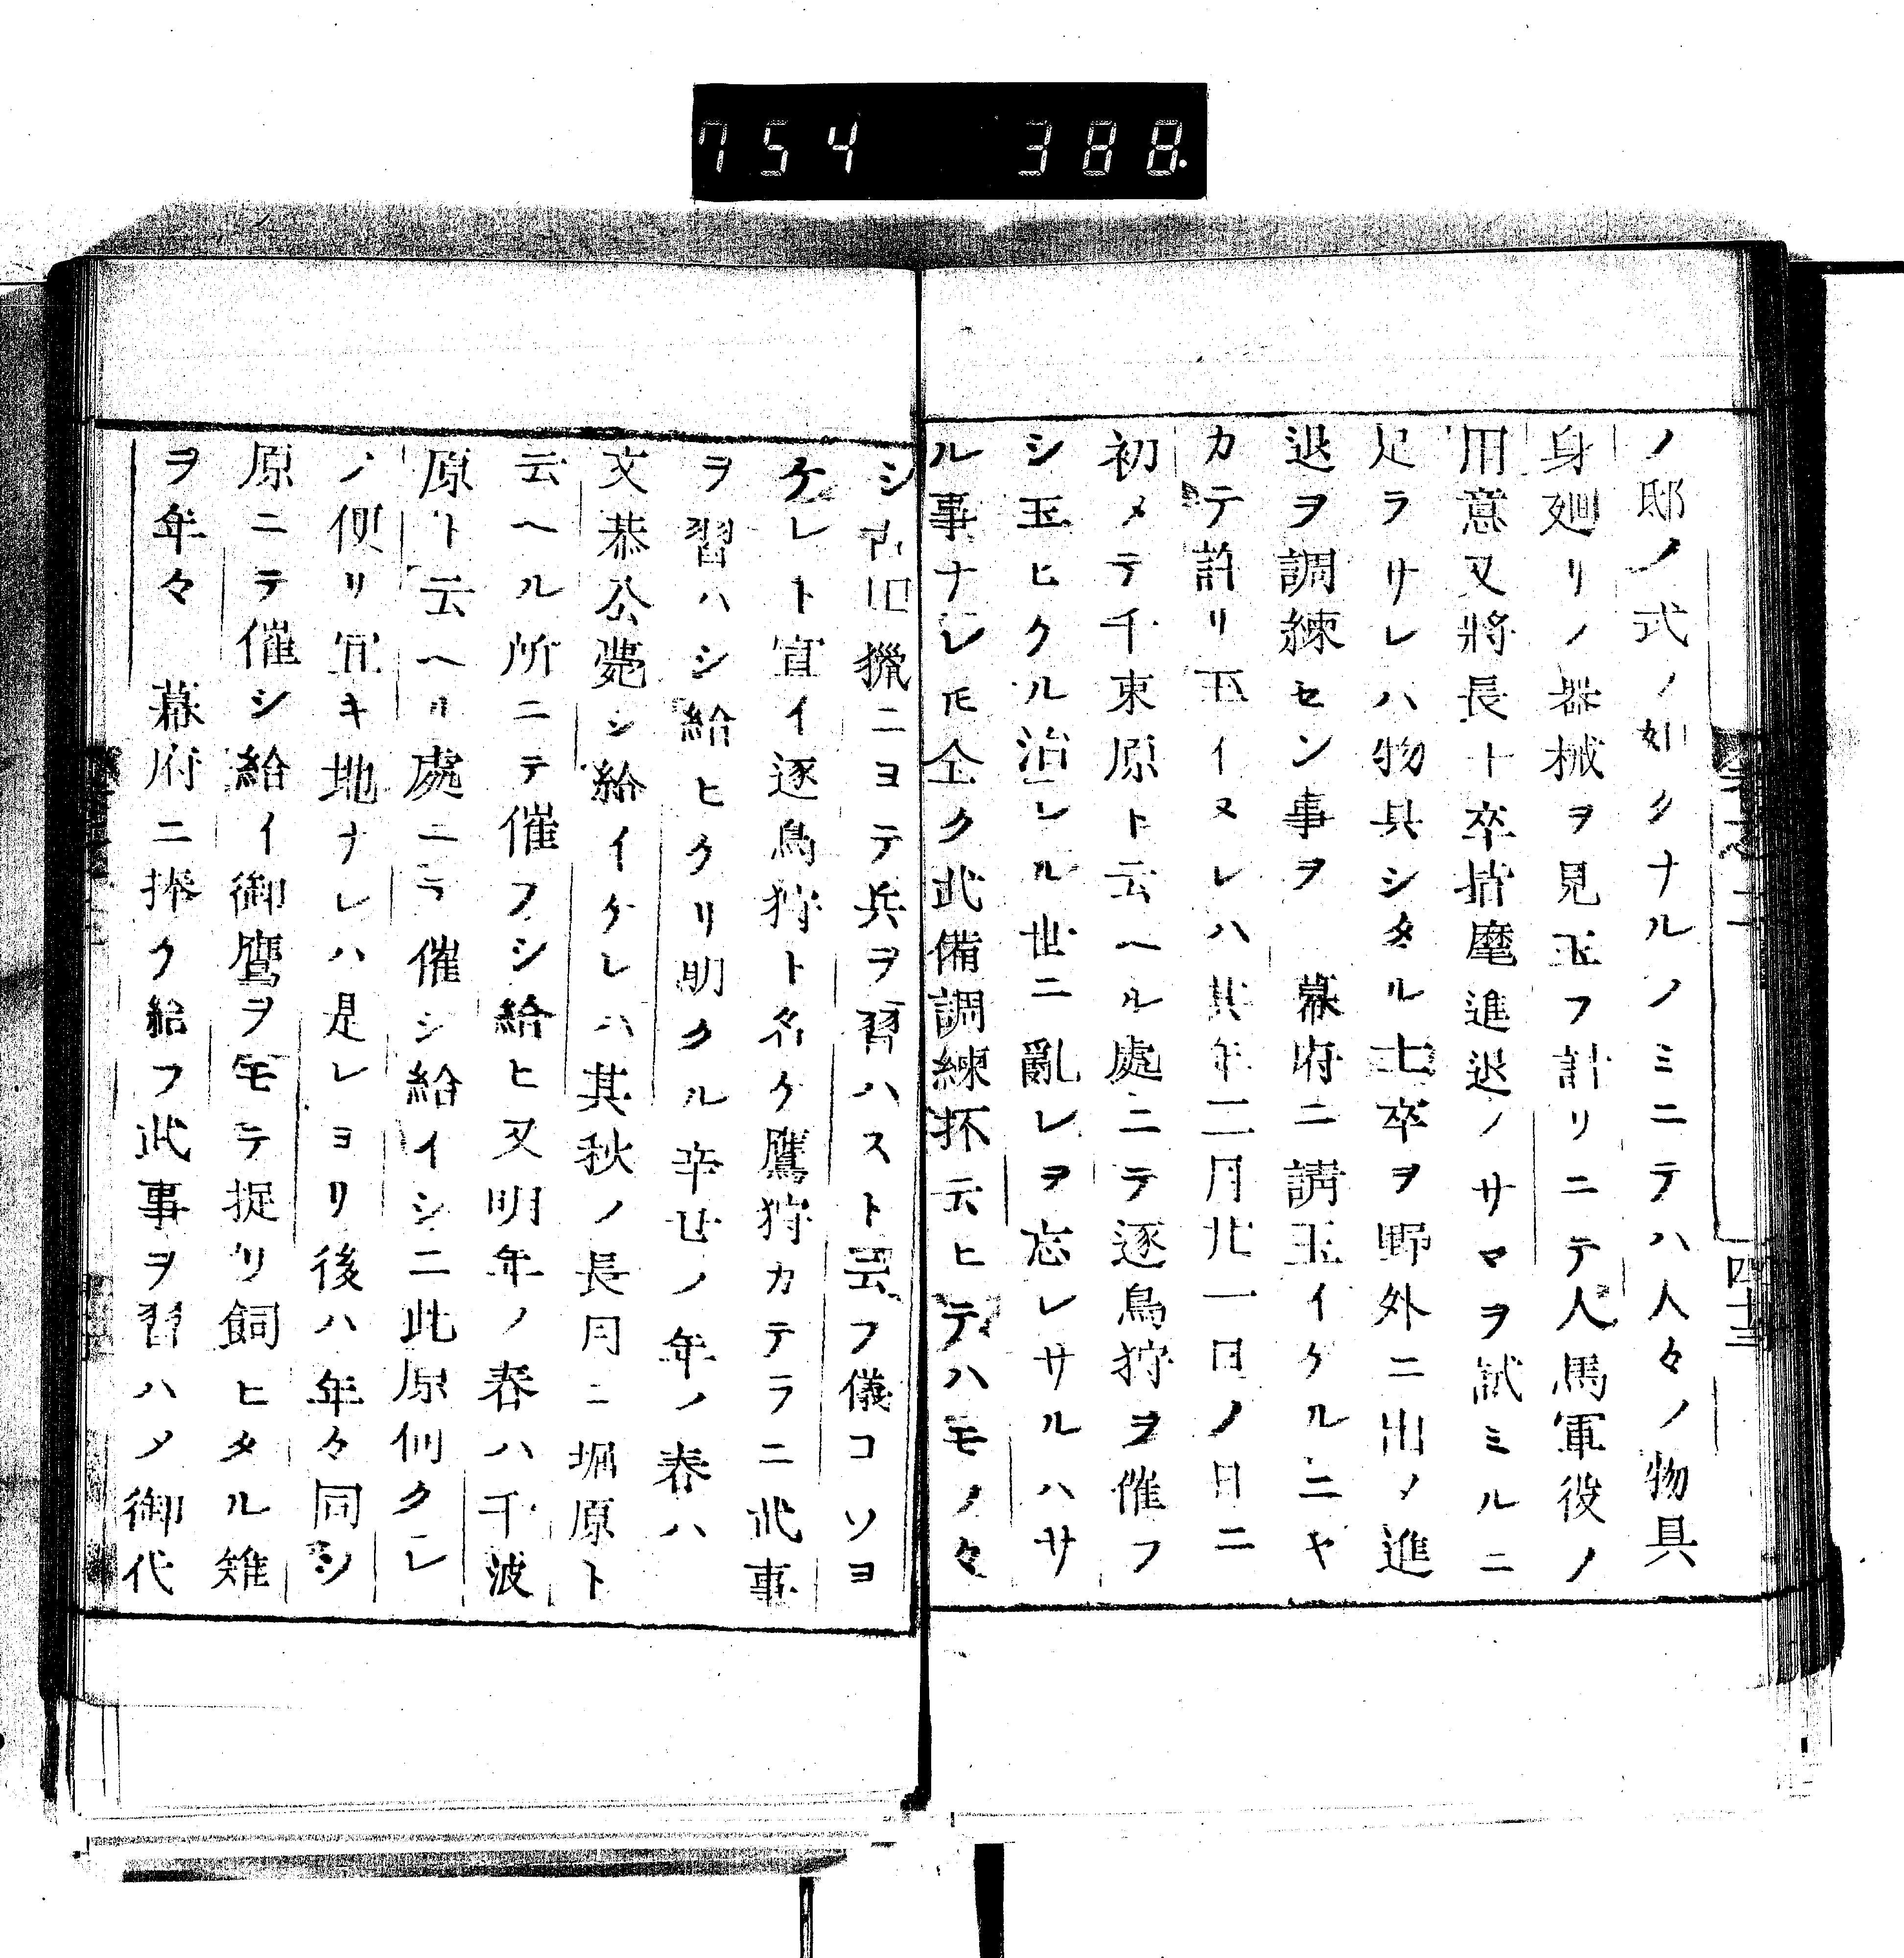 754 388
四十三
ノ邸ノ式ノ如クナルノミニテハ人々ノ物具
身廻リノ器械ヲ見玉フ計リニテ人馬軍役ノ
用意又將長十卒指麾進退ノサマヲ試ミルニ
足ラサレハ物具シタル士卒ヲ野外ニ出ノ進
退ヲ調練セン事ヲ　幕府ニ請玉イケルニヤ
カテ許リ玉イヌレハ其年二月廿一日ノ日ニ
初メテ千束原ト云ヘル處ニテ逐鳥狩ヲ催フ
シ玉ヒケル治レル世ニ亂レヲ忘レサルハサ
ル事ナレ𪜈全ク武備調練抔云ヒテハモノ々
シ田獵ニヨテ兵ヲ習ハスト云フ儀コソヨ
ケレト宣イ逐鳥狩ト名ケ鷹狩カテラニ此事
ヲ習ハシ給ヒケリ明クル辛丑ノ年ノ春ハ
文恭公薨シ給イケレハ其秋ノ長月ニ堀原ト
云ヘル所ニテ催フシ給ヒ又明年ノ春ハ千波
原ト云ヘル處ニテ催シ給イシニ此原何クレ
ノ便リ宜キ地ナレハ是レヨリ後ハ年々同シ
原ニテ催シ給イ御鷹ヲモテ捉リ飼ヒタル雉
ヲ年々　幕府ニ捧ケ給フ此事ヲ習ハメ御代